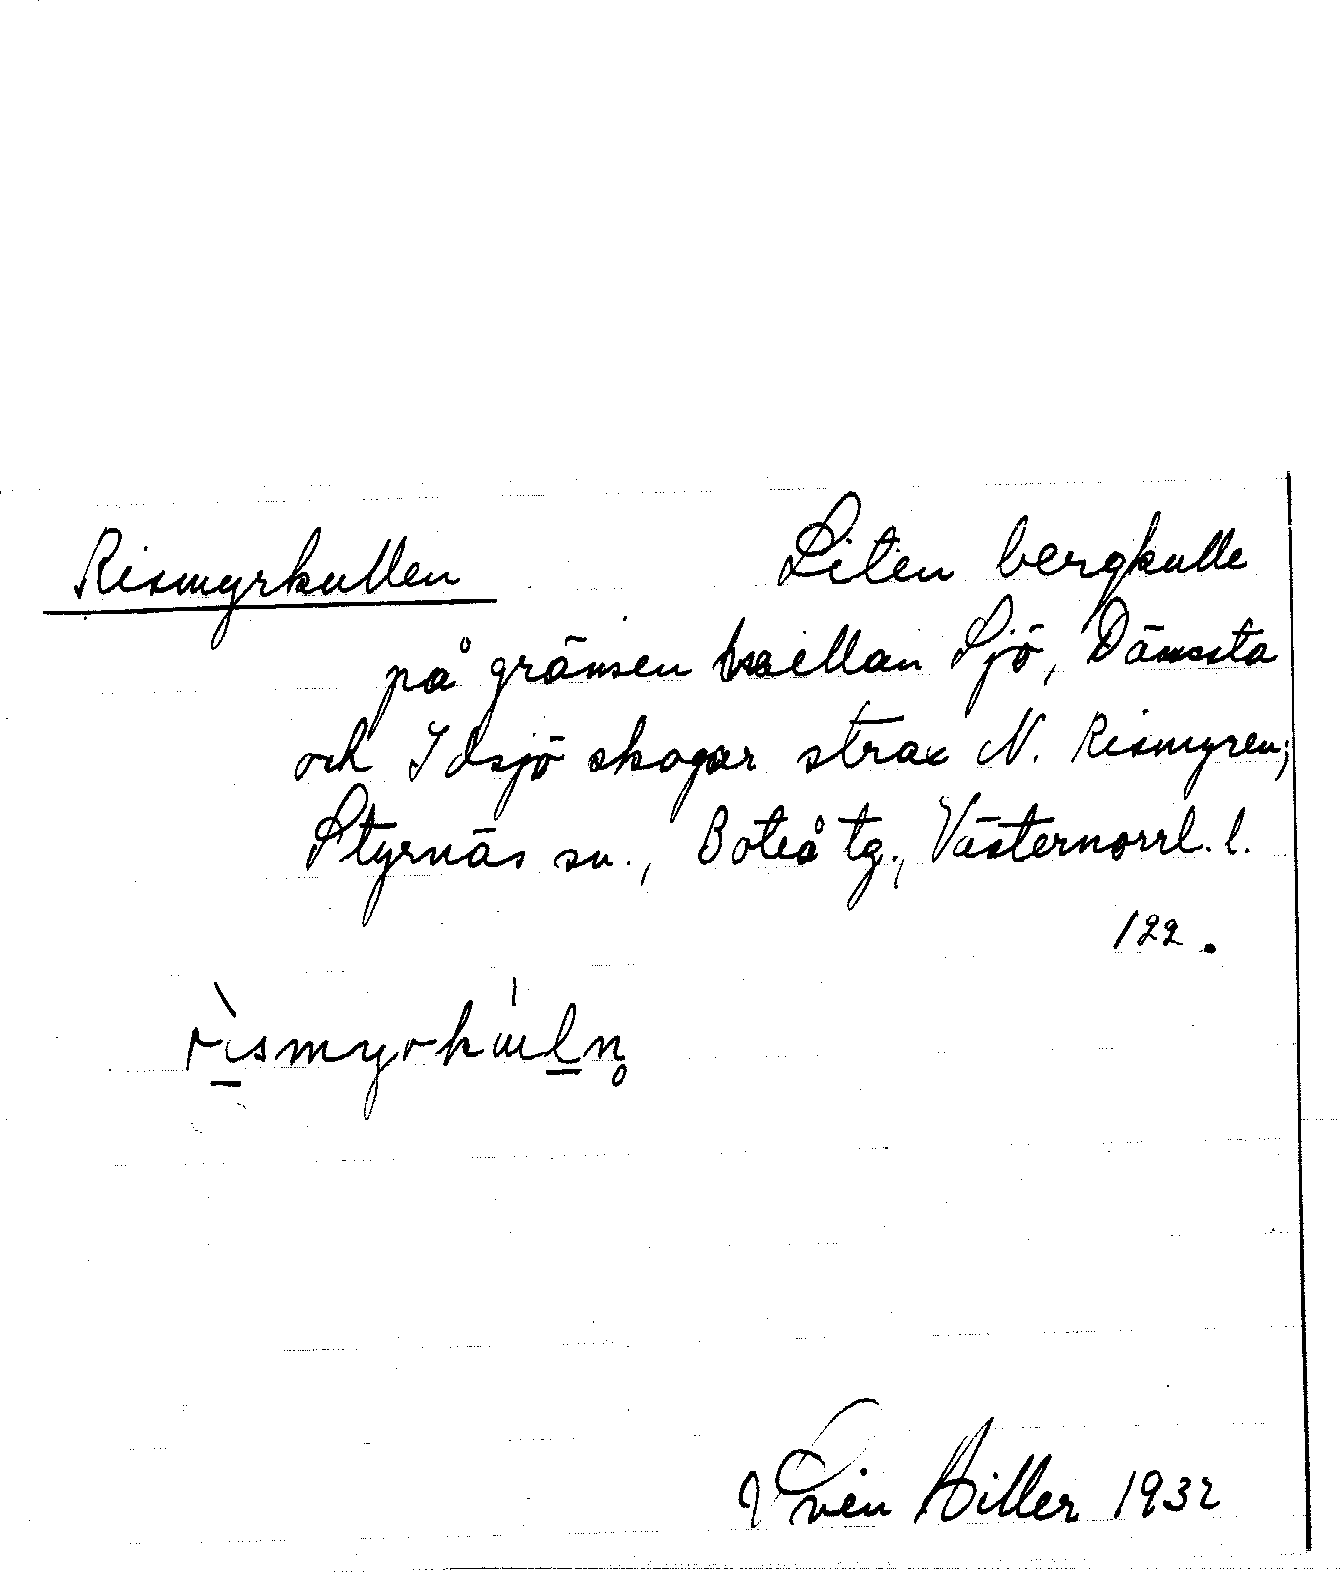 Rismyrkullen Liten bergkulle
på gränsen mellan Sjö, Dämsta
och Idsjö skogar strax N. Rismyren;
Styrnäs sn., Boteå tg., Västernorrl. l.
122.
rìsmyrkúln̥
Sven Hiller 1932